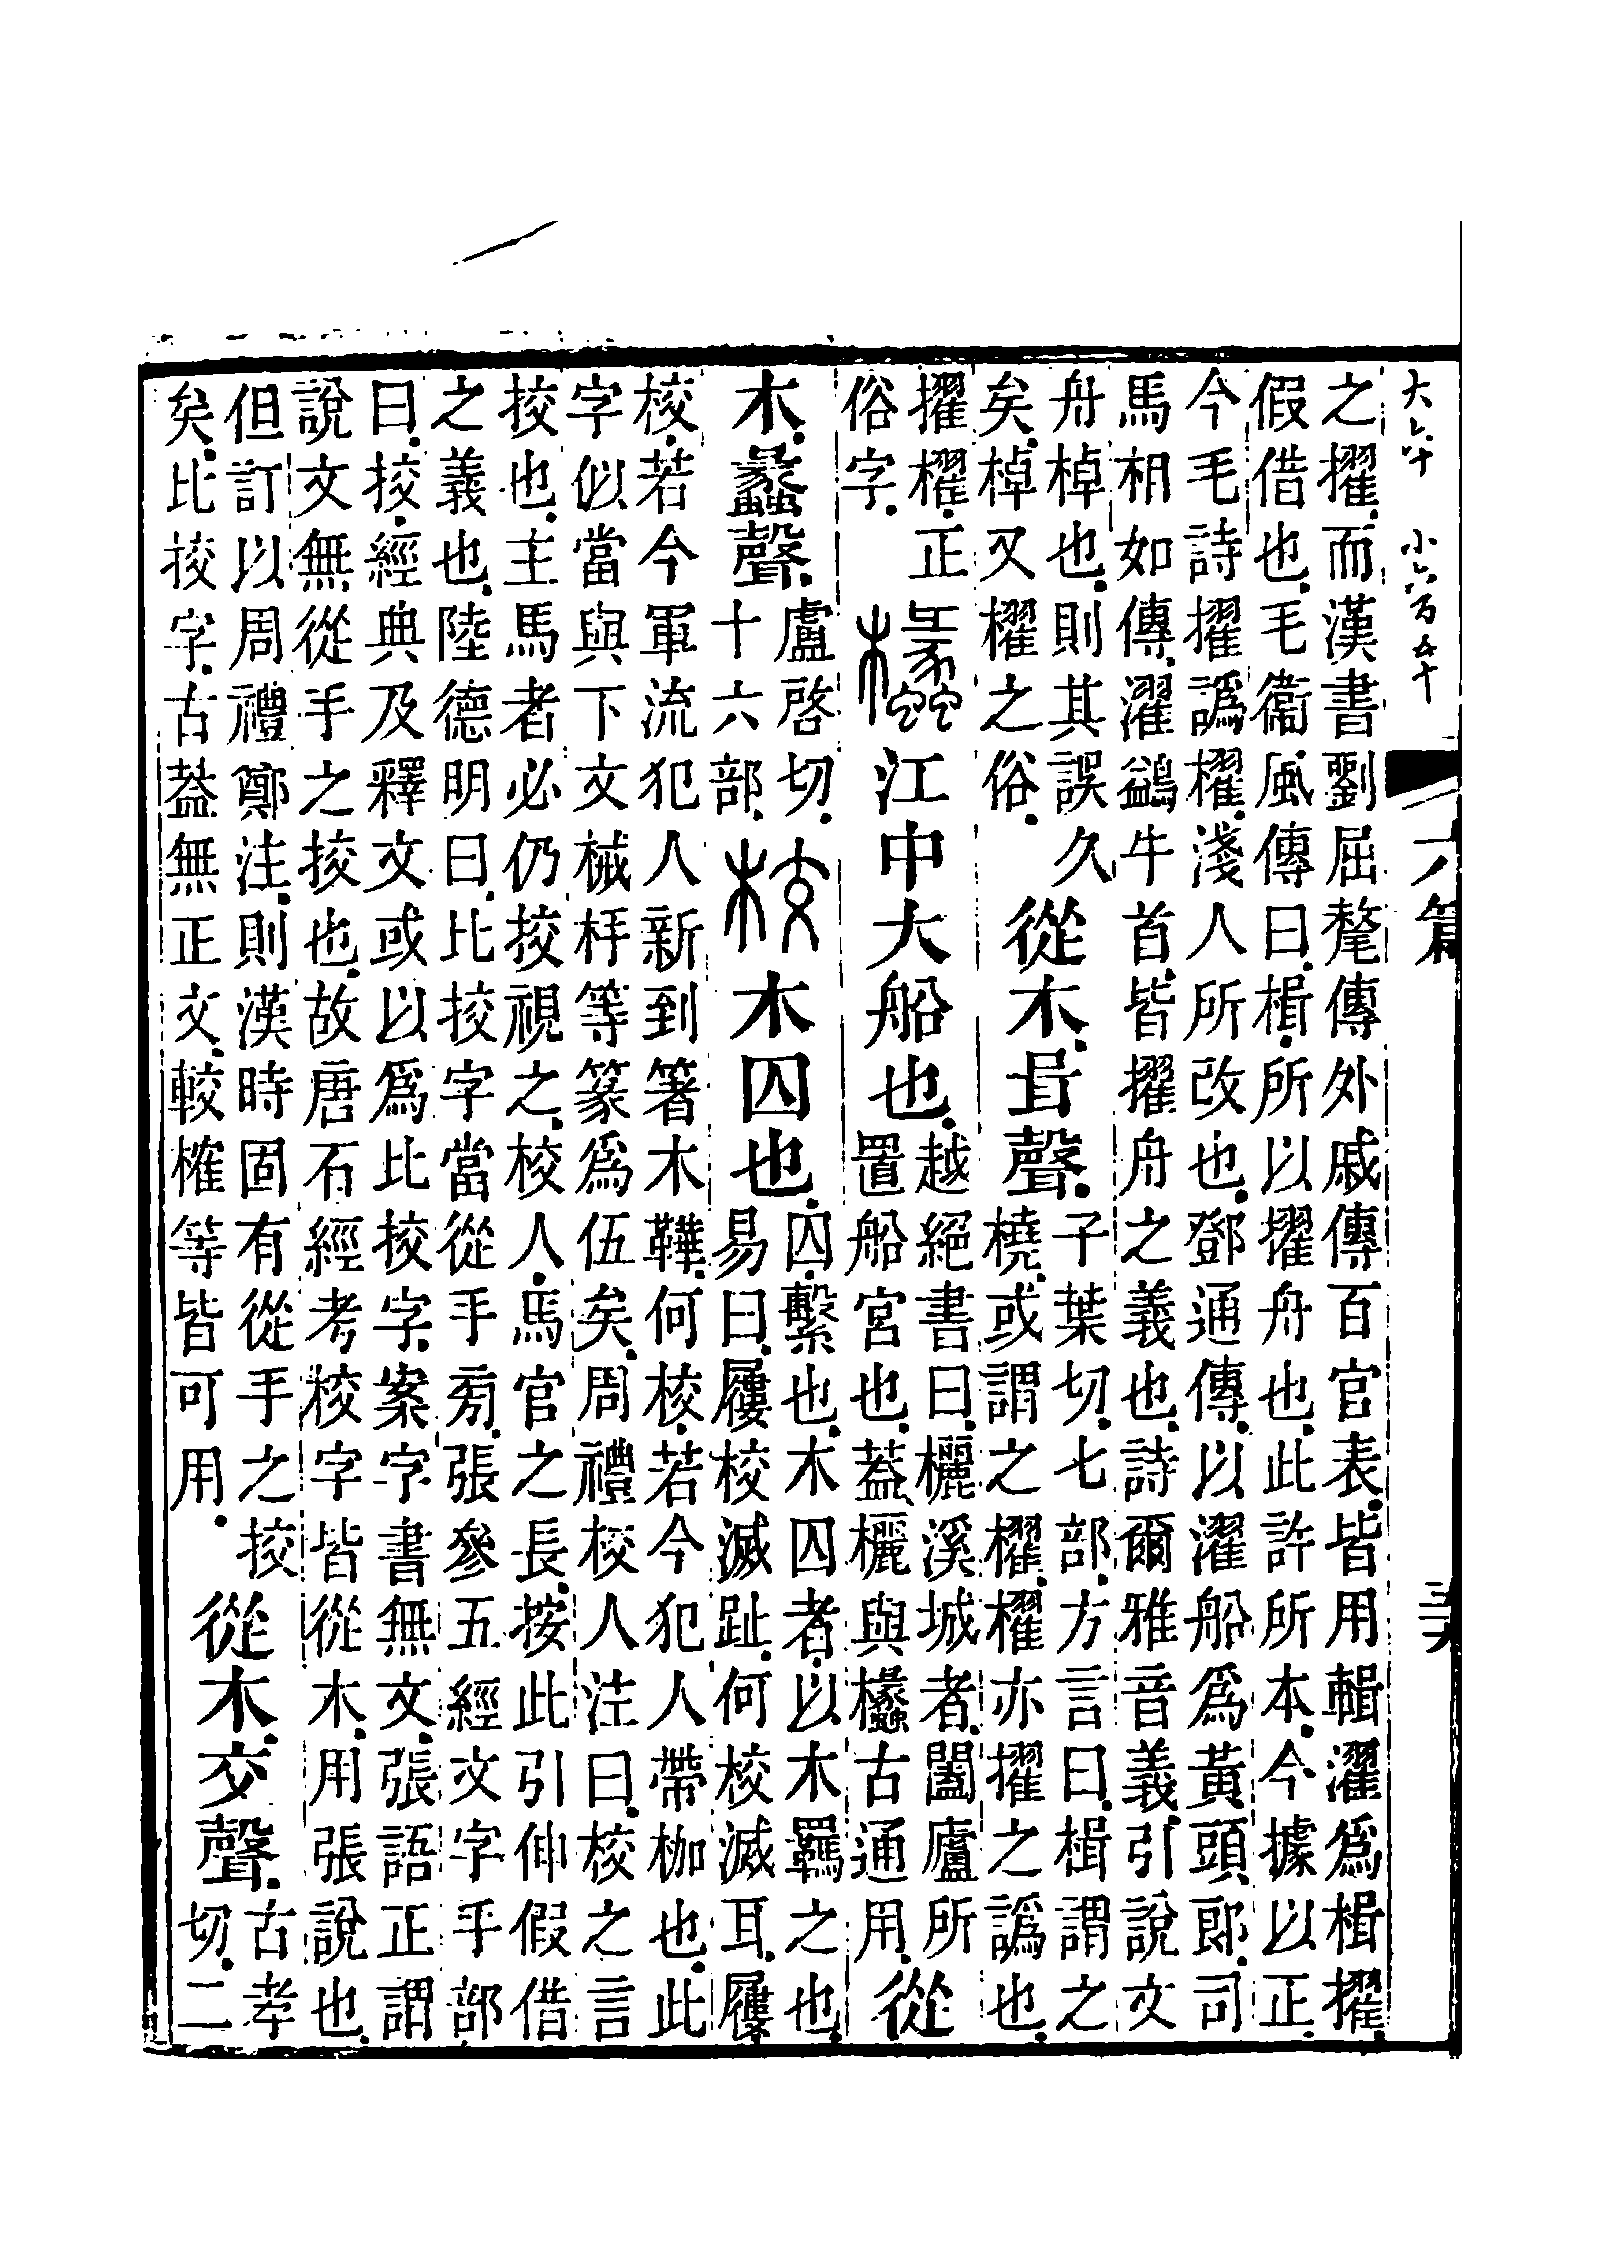 大六十 小六百五十
六篇
之擢而漢書劉屈氂傳外戚傳百官表皆用輯濯爲楫擢
假借也毛衞風傳曰楫所以擢舟也此許所本今據以正
今毛詩擢譌櫂淺人所改也鄧通傳以濯船爲黃頭郎司
馬相如傳濯鷁牛首皆擢舟之義也詩爾雅音義引說文
舟棹也則其誤久
矣棹又櫂之俗
從木咠聲
子葉切七部方言曰楫謂之
橈或謂之櫂櫂亦擢之譌也
擢櫂正
俗字
欚江中大船也
越絕書曰欐溪城者闔廬所
置船宮也葢欐與欚古通用
從
木蠡聲
盧啓切
十六部
校木囚也
囚繫也木囚者以木羈之也
易曰屨校滅趾何校滅耳屨
校若今軍流犯人新到箸木鞾何校若今犯人帶枷也此
字似當與下文械杽等篆爲伍矣周禮校人注曰校之言
挍也主馬者必仍挍視之校人馬官之長按此引伸假借
之義也陸德明曰比挍字當從手旁張參五經文字手部
曰挍經典及釋文或以爲比挍字案字書無文張語正謂
說文無從手之挍也故唐石經考校字皆從木用張說也
但訂以周禮鄭注則漢時固有從手之挍
矣比挍字古葢無正文較榷等皆可用
從木交聲
古孝
切二